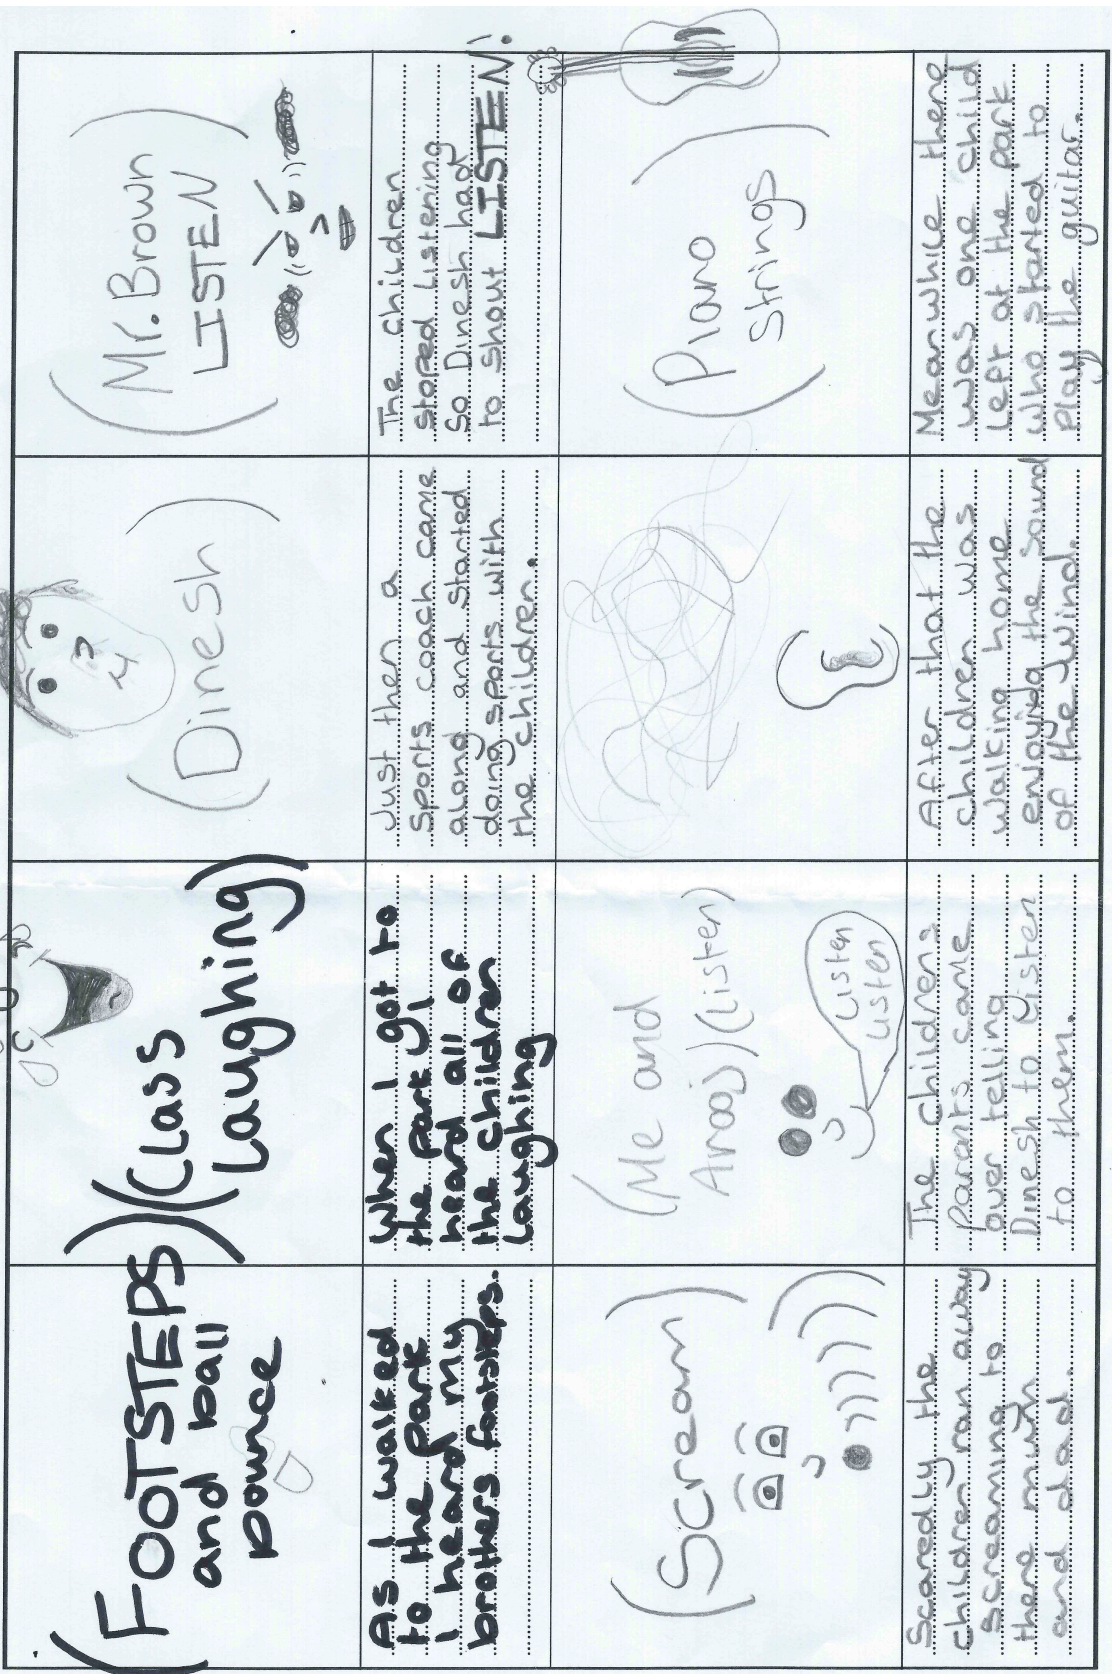 (FOOTSTEPS)
and ball
bounce
As I walked
to the park
I heard my
brothers footsteps.
(Class
Laughing)
When I got to
the park I
heard all of
the children
Laughing
(Dinesh)
Just then a
Sports coach came
along and started
doing sports with
the children.
(Mr. Brown
LISTEN)
The children
stoped Listening
So Dinesh had
to shout LISTEN!
(Scream)
Scaredly the
children ran away
screaming to
there mum
and dad.
(Me and
Arooj) (Listen)
Listen
Listen
The childrens
parents came
over telling
Dinesh to Listen
to them.
After that the
children was
walking home
enjoying the sound
of the wind.
(Piano
Strings)
Meanwhile there
was one child
Left at the park
who started to
Play the guitar.